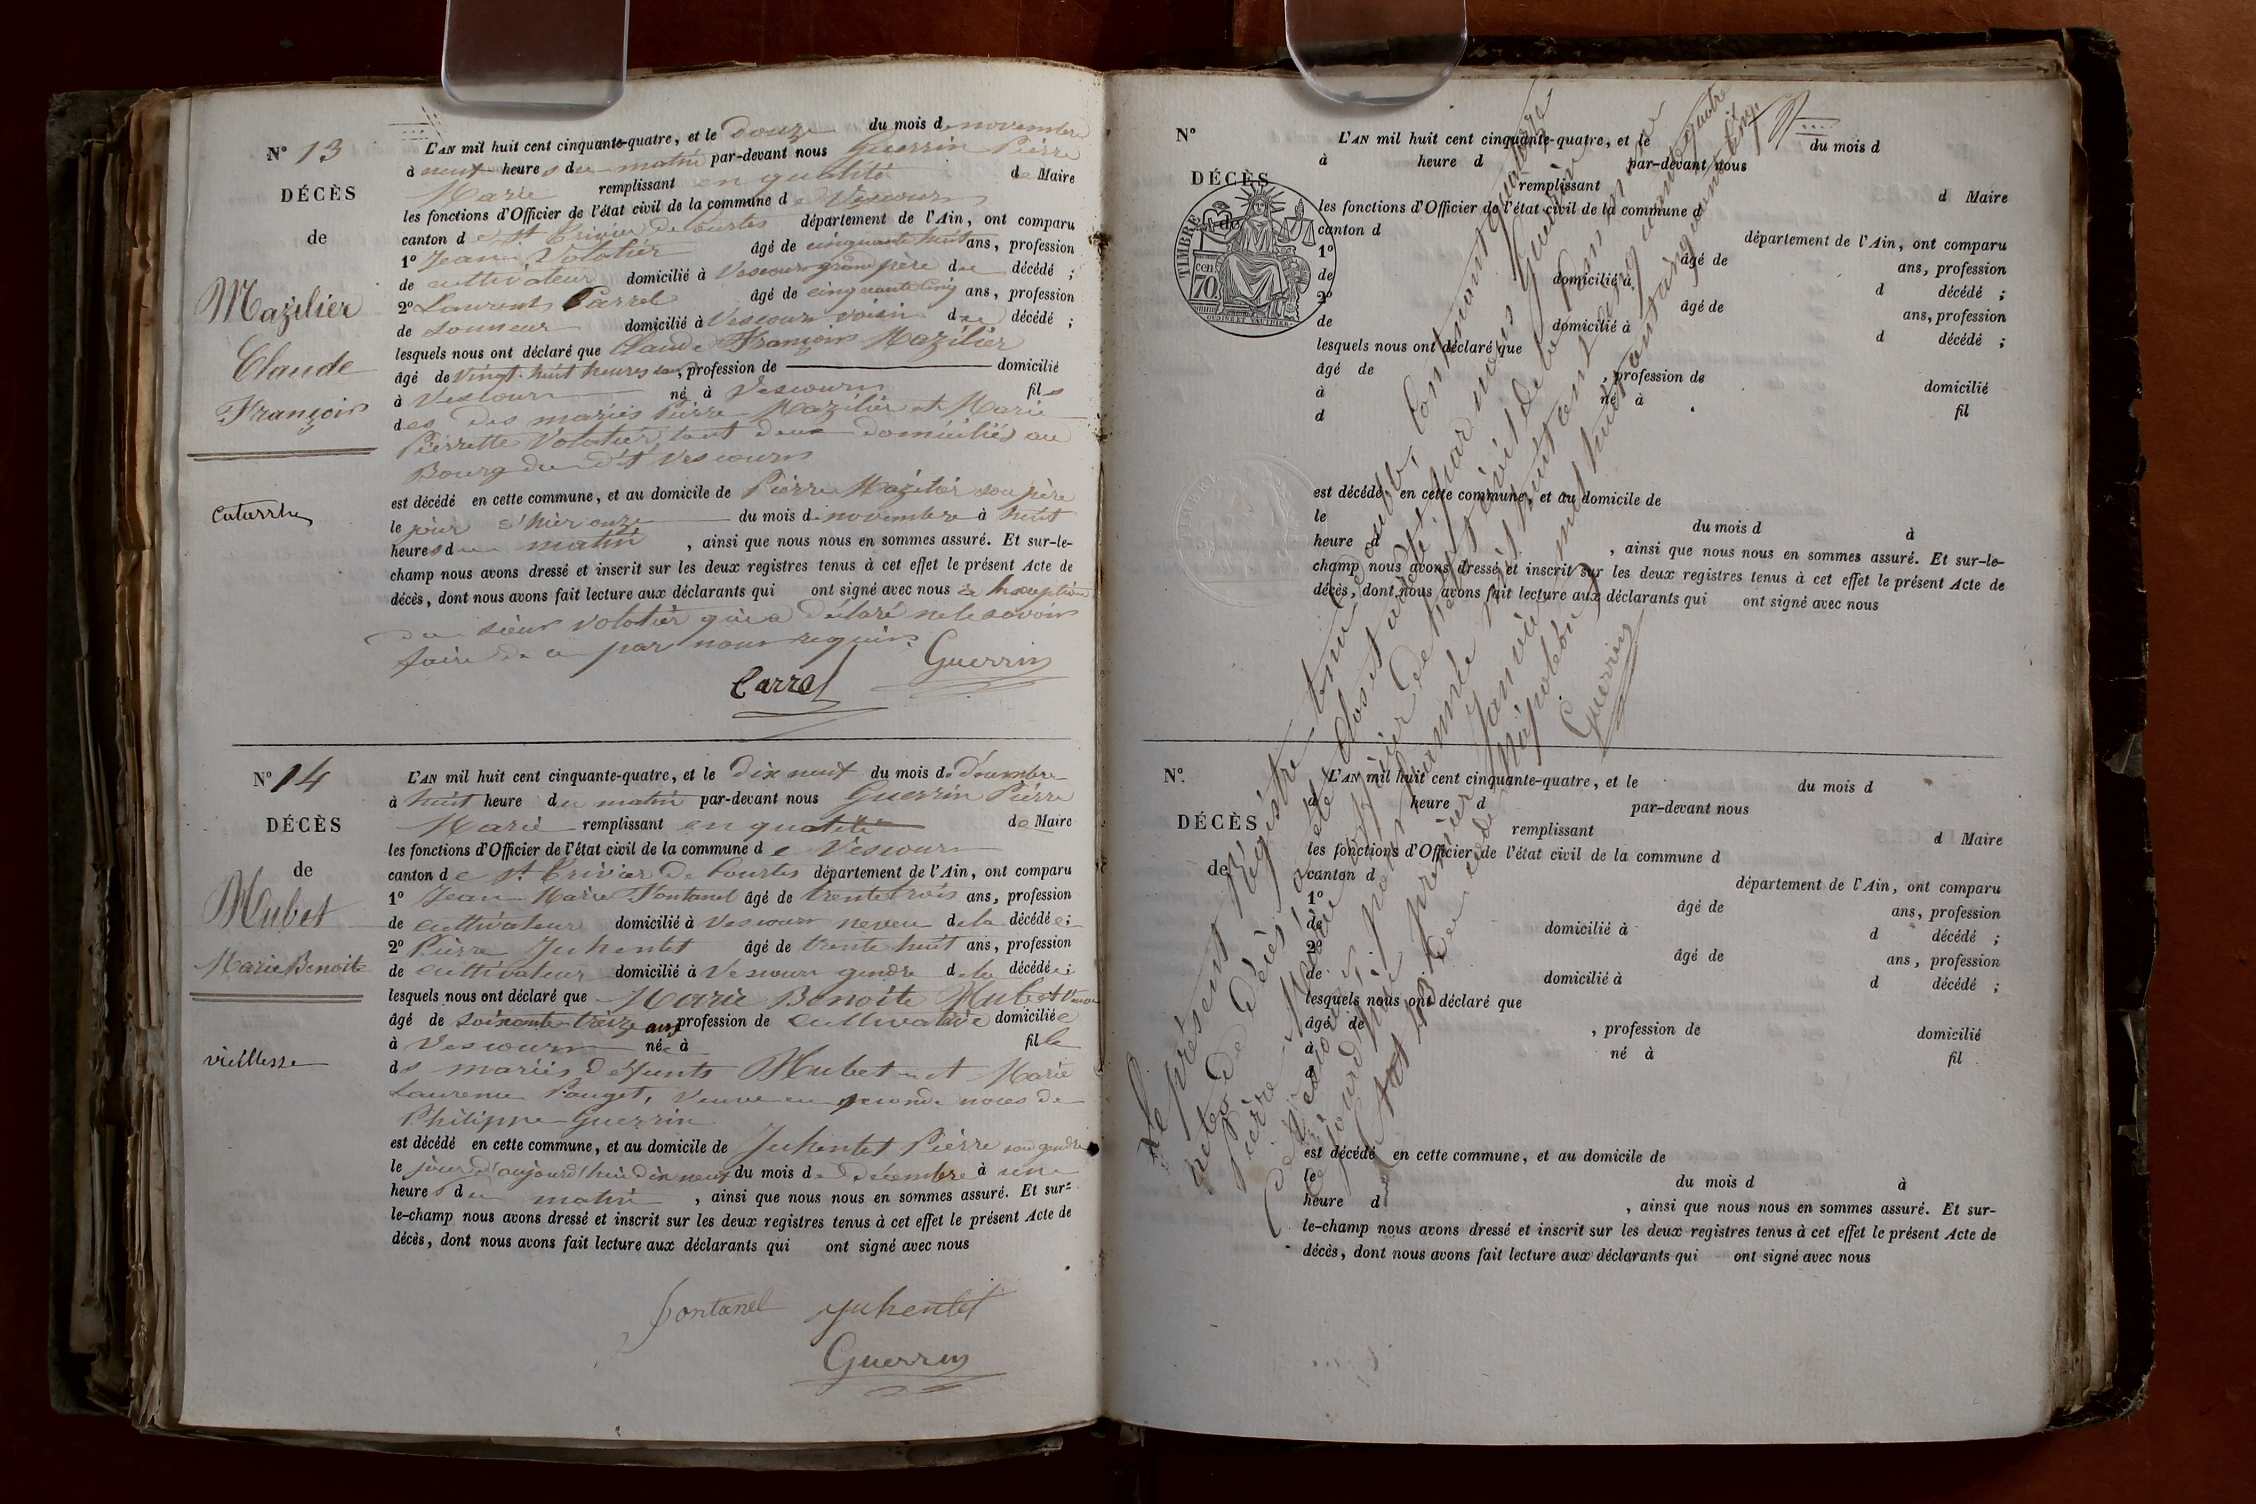 N° 13
DÉCÈS
de
Mazilier
Claude
François
Catarrhe
L'AN mil huit cent cinquante-quatre, et le douze du mois de novembre
à neuf heures du matin par-devant nous Guerrin Pierre
Marie remplissant en qualité de Maire
les fonctions d'Officier de l'état civil de la commune de Vescours
canton de St Trivier de Courtes département de l'Ain, ont comparu
1° Jean Volatier âgé de cinquante huit ans, profession
de cultivateur domicilié à Vescours grand père du décédé ;
2° Laurent Carrel âgé de cinquante cinq ans, profession
de sonneur domicilié à Vescours voisin du décédé ;
lesquels nous ont déclaré que Claude François Mazilier
âgé de vingt-huit heures, profession de domicilié
à Vescours né à Vescours fils
des mariés Pierre Mazilier et Marie
Pierrette Volatier tout deux domiciliés au
Bourg du dit Vescours
est décédé en cette commune, et au domicile de Pierre Mazilier son père
le jour d'hier onze du mois de novembre à huit
heures du matin, ainsi que nous nous en sommes assuré. Et sur-le-
champ nous avons dressé et inscrit sur les deux registres tenus à cet effet le présent Acte de
décès, dont nous avons fait lecture aux déclarants qui ont signé avec nous à l'exception
du sieur Volatier qui a déclaré ne le savoir
faire de ce par nous requis.
Carrel Guerrin
N° 14
DÉCÈS
de
Mubet
Marie Benoite
vieillesse
L'AN mil huit cent cinquante-quatre, et le dix neuf du mois de décembre
à huit heure du matin par-devant nous Guerrin Pierre
Marie remplissant en qualité de Maire
les fonctions d'Officier de l'état civil de la commune de Vescours
canton de St Trivier de Courtes département de l'Ain, ont comparu
1° Jean Marie Fontanel âgé de trente trois ans, profession
de cultivateur domicilié à Vescours neveu de la décédée ;
2° Pierre Juhentet âgé de trente huit ans, profession
de cultivateur domicilié à Vescours gendre de la décédée ;
lesquels nous ont déclaré que Marie Benoite Mubet
âgé de soixante-treize ans profession de cultivatrice domiciliée
à Vescours née à fille
ds mariés défunts Mubet et Marie
Laurence Pouget, Veuve en seconde noces de
Philippe Guerrin
est décédé en cette commune, et au domicile de Juhentet Pierre son gendre
le jour d'aujourd'hui dix neuf du mois de Décembre à une
heures du matin, ainsi que nous nous en sommes assuré. Et sur-
le-champ nous avons dressé et inscrit sur les deux registres tenus à cet effet le présent Acte de
décès, dont nous avons fait lecture aux déclarants qui ont signé avec nous
fontanel juhentet
Guerrin
N°
DÉCÈS
de
TIMBRE
cen
70
L'AN mil huit cent cinquante-quatre, et le du mois d
à heure d par-devant nous
remplissant d Maire
les fonctions d'Officier de l'état civil de la commune d
canton d département de l'Ain, ont comparu
1° âgé de ans, profession
de domicilié à d décédé ;
2° âgé de ans, profession
de domicilié à d décédé ;
lesquels nous ont déclaré que
âgé de , profession de domicilié
à né à fil
d
est décédé en cette commune, et au domicile de
le du mois d à
heure d , ainsi que nous nous en sommes assuré. Et sur-le-
champ nous avons dressé et inscrit sur les deux registres tenus à cet effet le présent Acte de
décès, dont nous avons fait lecture aux déclarants qui ont signé avec nous
N°.
DÉCÈS
de
L'AN mil huit cent cinquante-quatre, et le du mois d
à heure d par-devant nous
remplissant d Maire
les fonctions d'Officier de l'état civil de la commune d
canton d département de l'Ain, ont comparu
1° âgé de ans, profession
de domicilié à d décédé ;
2° âgé de ans, profession
de domicilié à d décédé ;
lesquels nous ont déclaré que
âgé de , profession de domicilié
à né à fil
d
est décédé en cette commune, et au domicile de
le du mois d à
heure d , ainsi que nous nous en sommes assuré. Et sur-
le-champ nous avons dressé et inscrit sur les deux registres tenus à cet effet le présent Acte de
décès, dont nous avons fait lecture aux déclarants qui ont signé avec nous
Le présent Régistre tenu double, contenant quatorze
actes de Décès a été clos et arrêté par nous Guerrin
Pierre Marie officier de l'état civil de la commune de
Vescours, pour l'année mil huit cent cinquante quatre
Cejourd'hui premier Janvier mil huit cent cinquante cinq
Napoléon
Guerrin